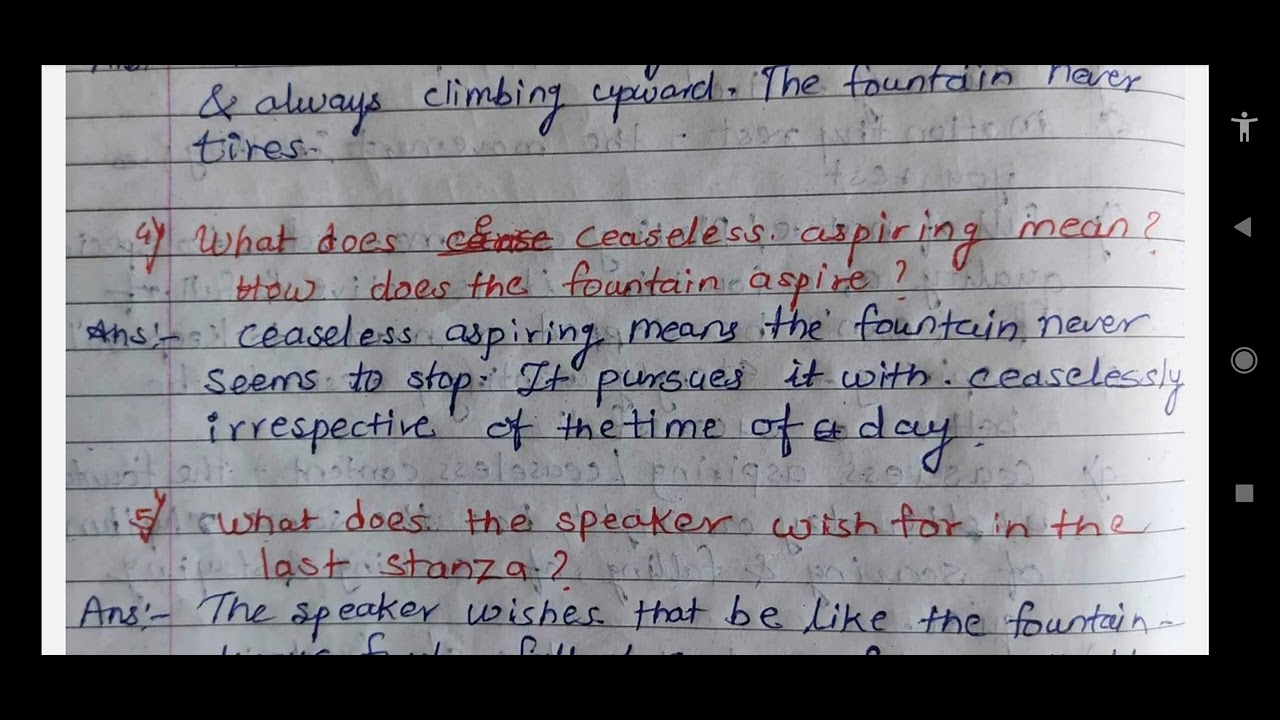 & always climbing upward. The fountain never
tires.
4) What does ceaseless aspiring mean?
How does the fountain aspire?
Ans:- ceaseless aspiring means the fountain never
seems to stop. It pursues it with ceaselessly
irrespective of the time of a day.
5) What does the speaker wish for in the
last stanza?
Ans:- The speaker wishes that be like the fountain-